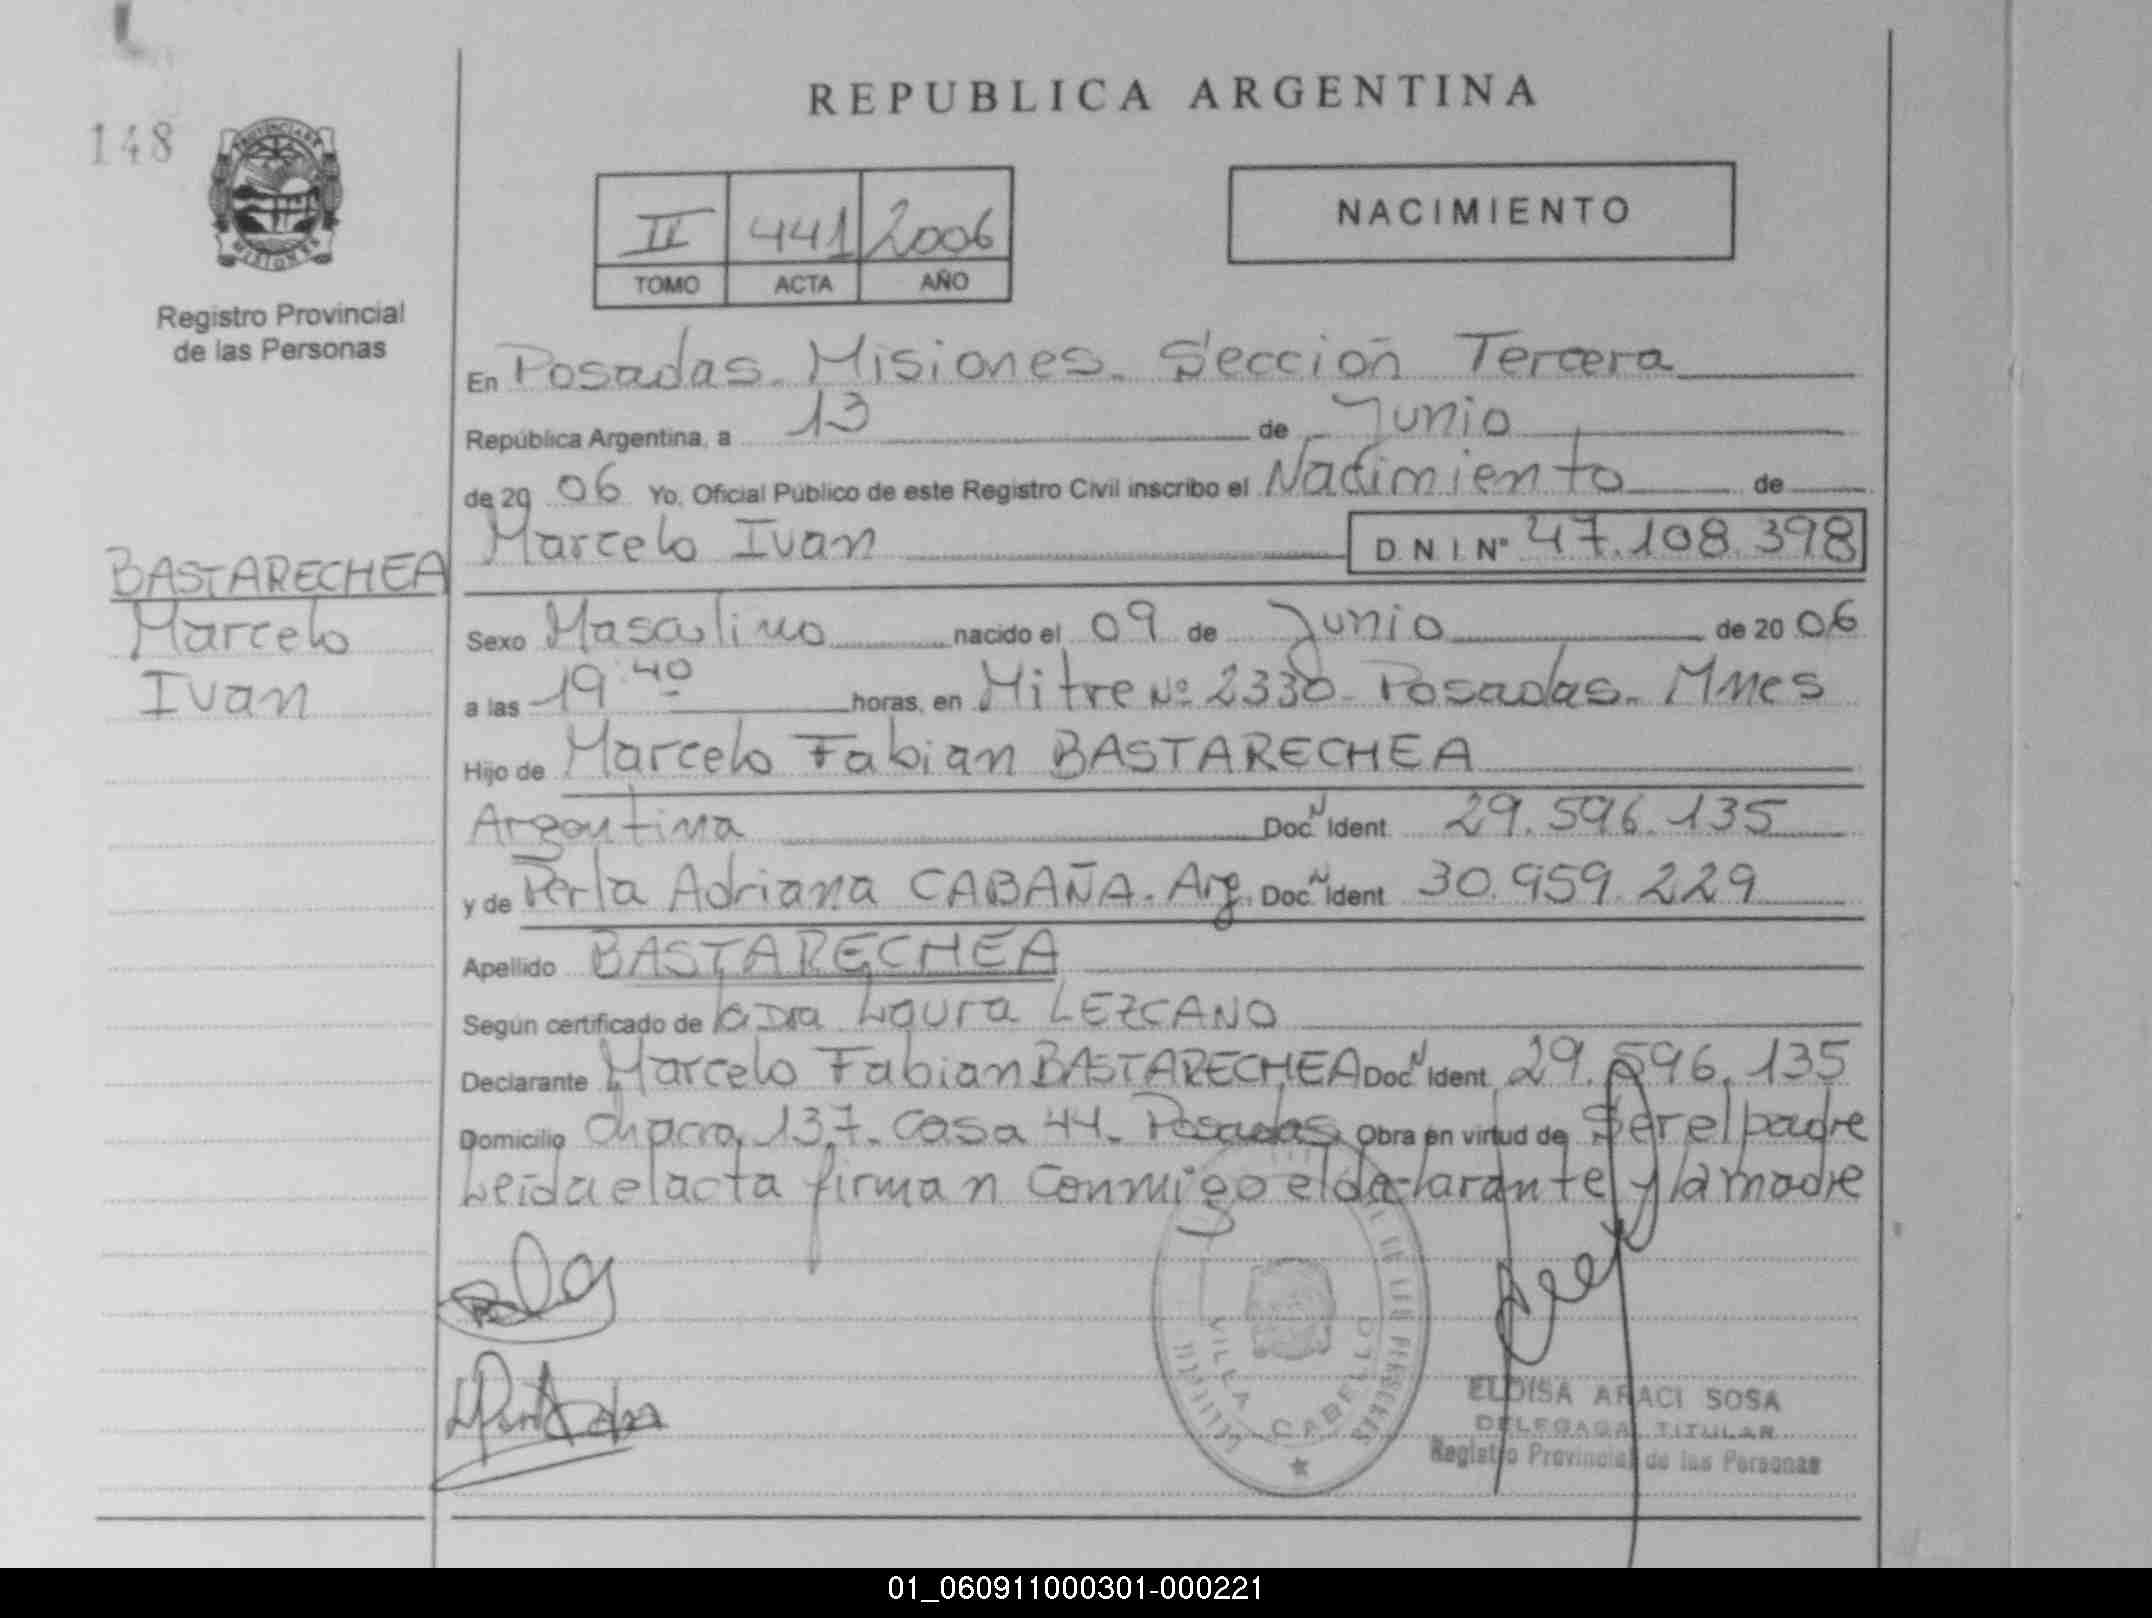 148
PROVINCIA DE
MISIONES
Registro Provincial
de las Personas
REPUBLICA ARGENTINA
II 441 2006
TOMO ACTA AÑO
NACIMIENTO
En Posadas. Misiones. Sección Tercera
República Argentina, a 13 de Junio
de 20 06 Yo, Oficial Público de este Registro Civil inscribo el Nacimiento de
Marcelo Ivan DNI Nº 47.108.398
BASTARECHEA
Marcelo
Ivan
Sexo Masculino nacido el 09 de Junio de 20 06
a las 19:40 horas, en Mitre Nº 2330. Posadas. Mnes
Hijo de Marcelo Fabian BASTARECHEA
Argentina Doc. Ident 29.596.135
y de Perla Adriana CABAÑA. Arg. Doc. Ident 30.959.229
Apellido BASTARECHEA
Según certificado de la Dra Laura LEZCANO
Declarante Marcelo Fabian BASTARECHEA Doc. Ident 29.596.135
Domicilio Chacra 137. Casa 44. Posadas. Obra en virtud de Ser el padre
Leida el acta firman conmigo el declarante y la madre
VILLA CABELLO
ELOISA ARACI SOSA
DELEGADA TITULAR
Registro Provincial de las Personas
01_060911000301-000221